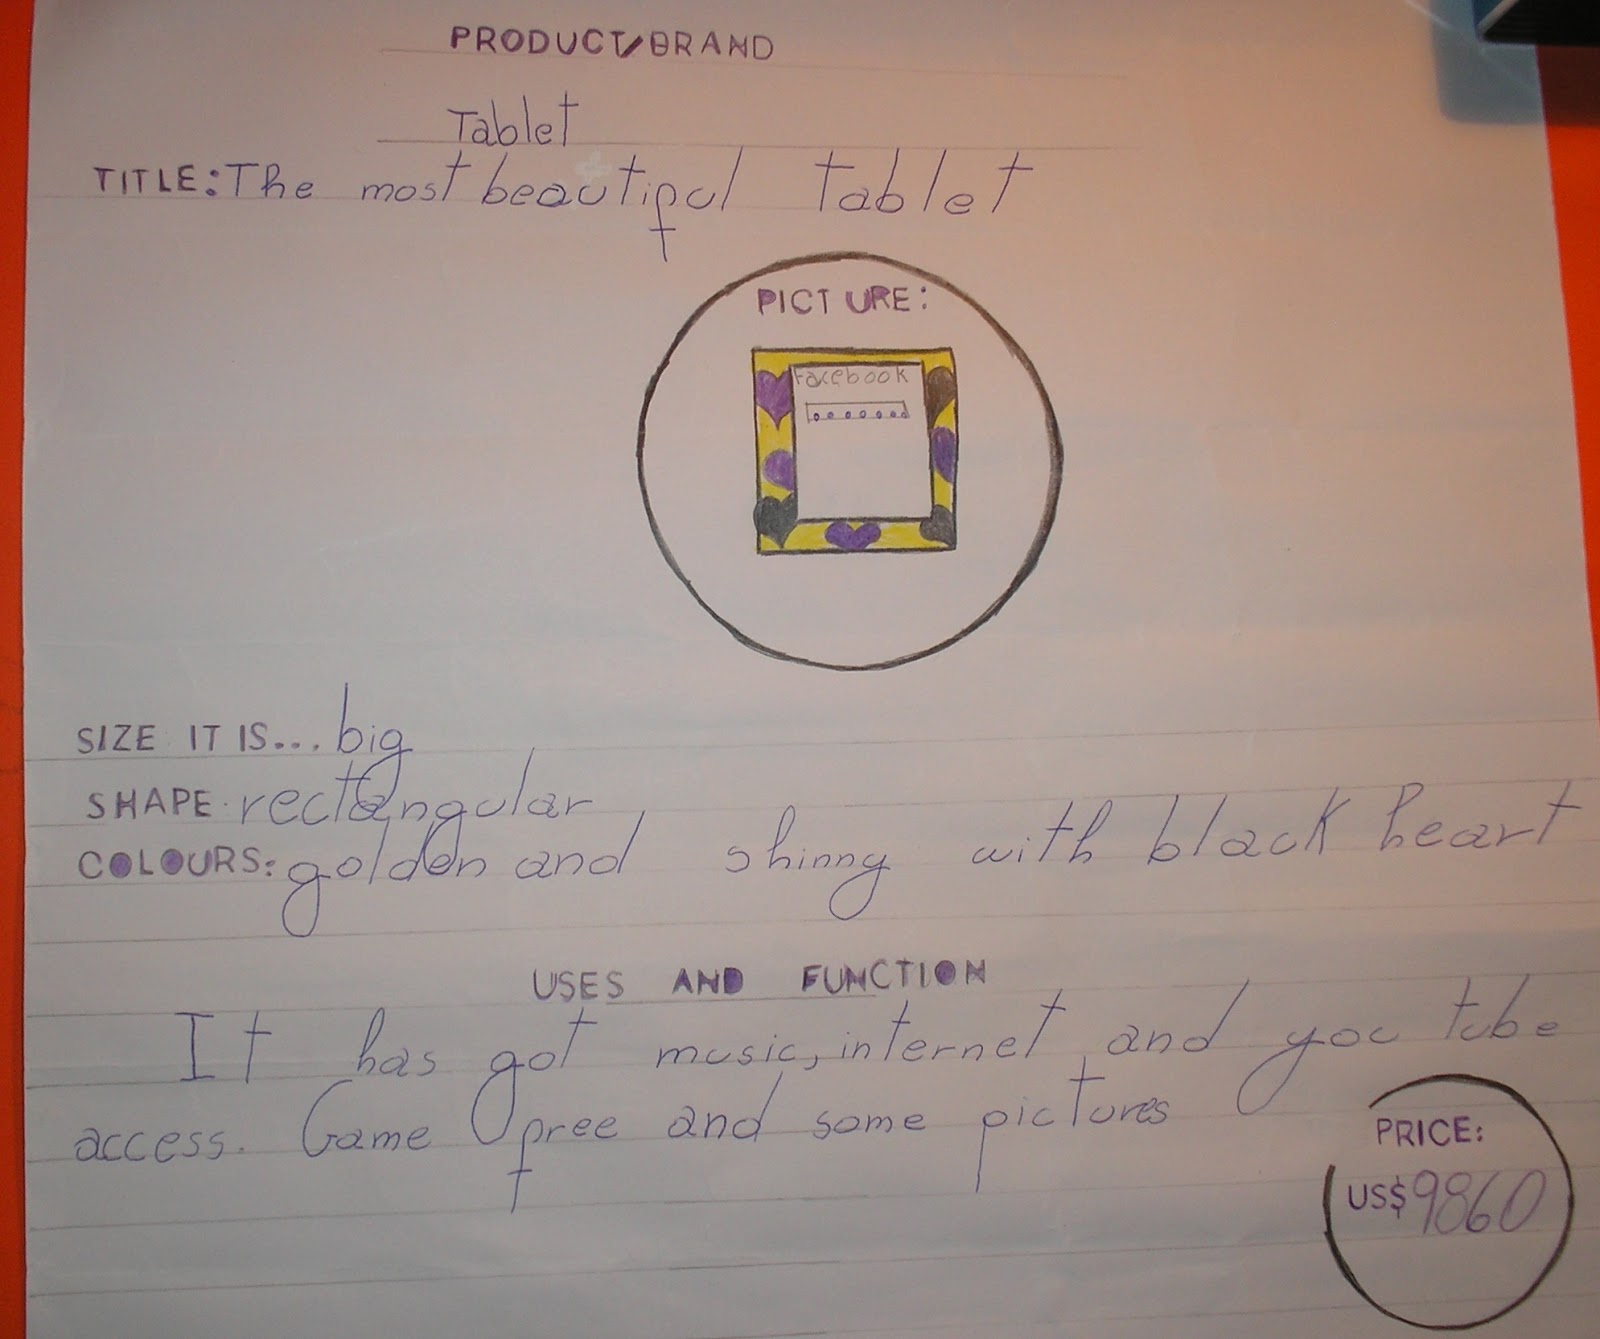 PRODUCT/BRAND
Tablet
TITLE: The most beautiful tablet
PICTURE:
Facebook
SIZE IT IS... big
SHAPE. rectangular
COLOURS: golden and shinny with black heart
USES AND FUNCTION
It has got music, internet, and you tube
access. Game free and some pictures
PRICE:
US$9860